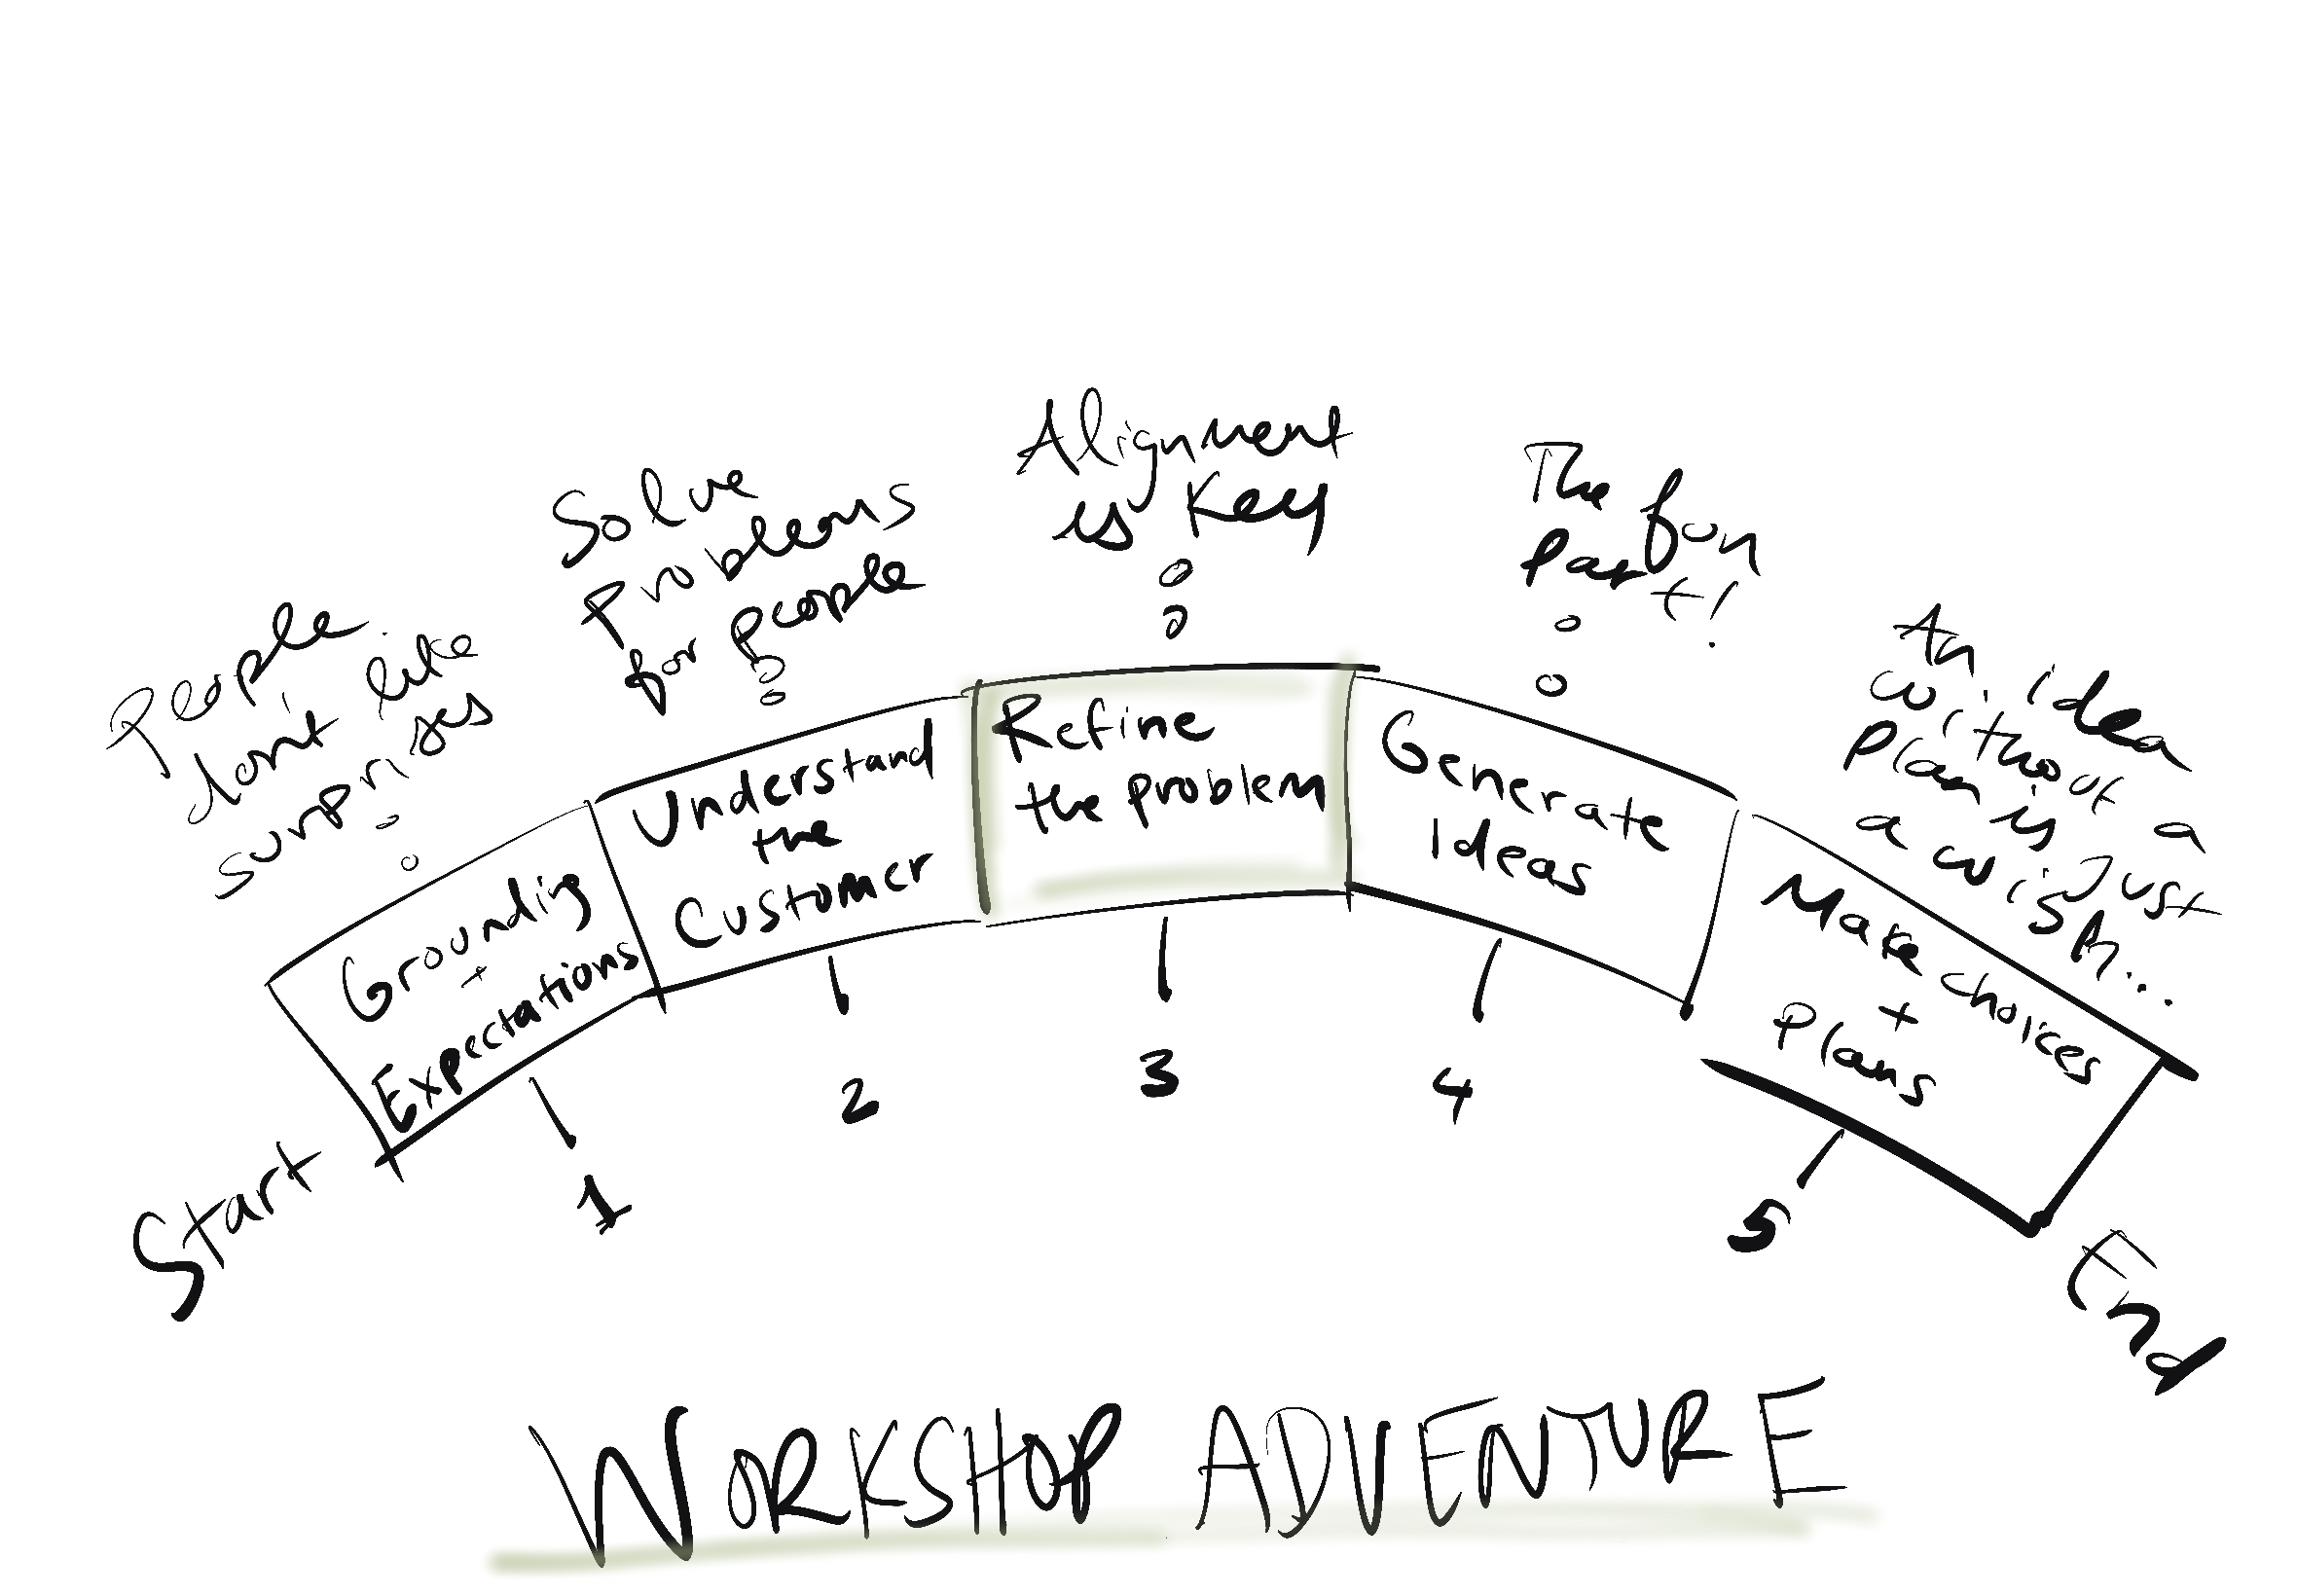 People
don't like
surprises
Solve
Problems
for people
Alignment
is Key
The fun
Part!
An idea
without a
plan is Just
a wish...
Grounding
+
Expectations
Understand
the
Customer
Refine
the problem
Generate
Ideas
Make choices
+
Plans
Start
1
2
3
4
5
End
WORKSHOP ADVENTURE